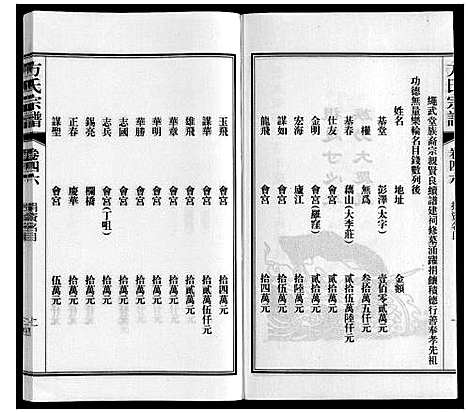 方氏宗譜
卷四六
繩武堂族裔宗親賢良續譜建祠修墓涌躍捐饋積德行善奉孝先祖
功德無量樂輸名目錢數列後
姓名 地址 金額
基堂 彭澤(太字) 壹佰零貳萬元
權 無爲 叁拾萬五仟元
基春 藕山(大李莊) 貳拾五萬陸仟元
仕友 會宮 貳拾萬元
金明 會宮(羅窪) 貳拾萬元
宏海 廬江 拾陸萬元
謀如 會宮 拾五萬元
龍飛 會宮 拾四萬元
玉飛 會宮 拾四萬元
謀華 會宮 拾貳萬伍仟元
雄飛 會宮 拾貳萬元
華章 會宮 拾貳萬元
華明 會宮 拾萬元
華勝 會宮 拾萬元
志國 會宮 拾萬元
志兵 會宮(丁咀) 拾萬元
錫亮 欄橋 拾萬元
正春 慶華 陸萬元
謀聖 會宮 伍萬元
方氏宗譜
卷四六